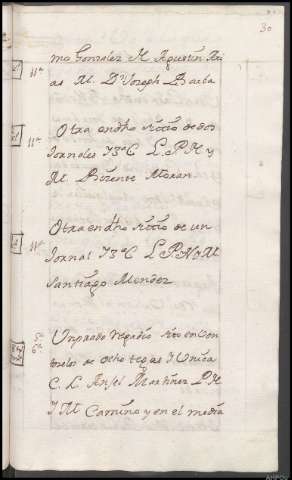 30
mo Gonzalez N Agustin Ari
as M. Dn Joseph Barba
11ª
Otra en dho sitio de dos
Jornales 1 3ª C L P N y
M. Bizente Moran
11ª
Otra en dho sitio de un
Jornal 1 3ª C L P N o M
Santiago Mendez
Un prado regadio sito en Con
de ocho 1 Unica
C. L. Anjel Martinez P N
1 M Camino y en el media